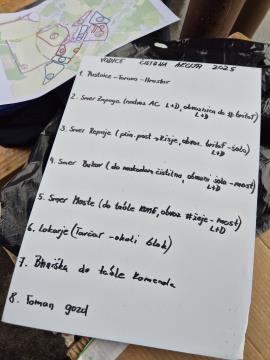 VODICE ČISTILNA AKCIJA 2025
1. Pustnice - Torovo - Hraster
2. Smer Zapoge (nadvoz AC L+D, obvoznica do # britof)
L+D
3. Smer Repnje (ptin. post → Križe, obvoz. britof - šola)
L+D
4. Smer Bukov (do makadam čistilna, obvoz šola - most)
L+D
5. Smer Moste (do table KONF, obvoz # žaje - most)
L+D
6. Lokarje (Torčar - okoli blok)
7. Bhniška do table Komenda
8. Toman gozd